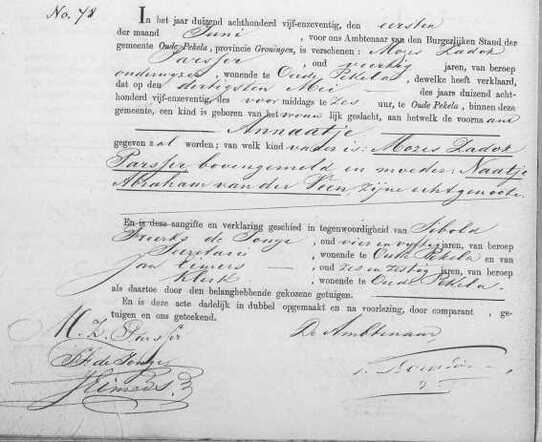 No. 78
In het jaar duizend achthonderd vijf-enzeventig, den eersten
der maand Juni, voor ons Ambtenaar van den Burgerlijken Stand der
gemeente Oude Pekela, provincie Groningen, is verschenen: Mozes Zadok
Parsser, oud veertig jaren, van beroep
onderwijzer, wonende te Oude Pekela, dewelke heeft verklaard,
dat op den dertigsten Mei des jaars duizend acht-
honderd vijf-enzeventig, des voor middags te zes uur, te Oude Pekela, binnen deze
gemeente, een kind is geboren van het vrouwlijk geslacht, aan hetwelk de voorna am
Annaatje
gegeven zal worden; van welk kind vader is: Mozes Zadok
Parsser bovengemeld en moeder: Naatje
Abraham van der Veen, zijne echtgenoote.
En is deze aangifte en verklaring geschied in tegenwoordigheid van Sibold
Freerks de Jonge, oud vier en vijftig jaren, van beroep
Secretaris, wonende te Oude Pekela en van
Jan Eimers, oud zes en zestig jaren, van beroep
Klerk, wonende te Oude Pekela.
als daartoe door den belanghebbende gekozene getuigen.
En is deze acte dadelijk in dubbel opgemaakt en na voorlezing, door comparant, ge-
tuigen en ons geteekend.
M. Z. Parsser
De Ambtenaar,
de Jonge
J Eimers